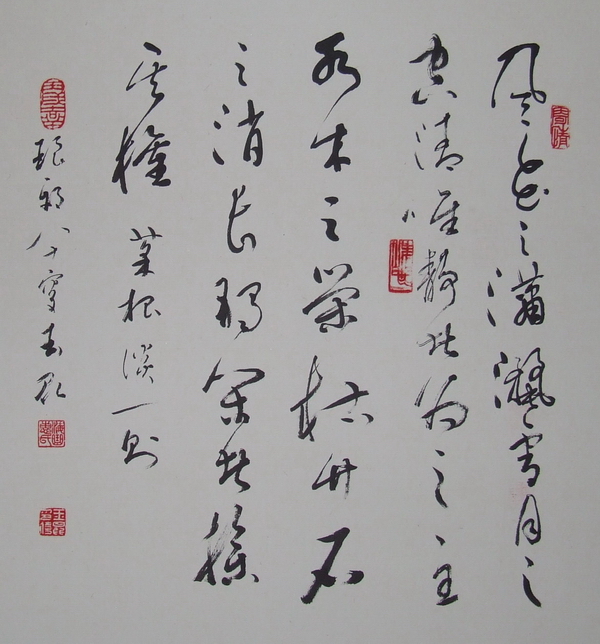 風花之瀟灑雪月之
空清唯靜者為之主
水木之榮枯竹石
之消長獨閑者操
其權 菜根談一則
琅邪八十叟